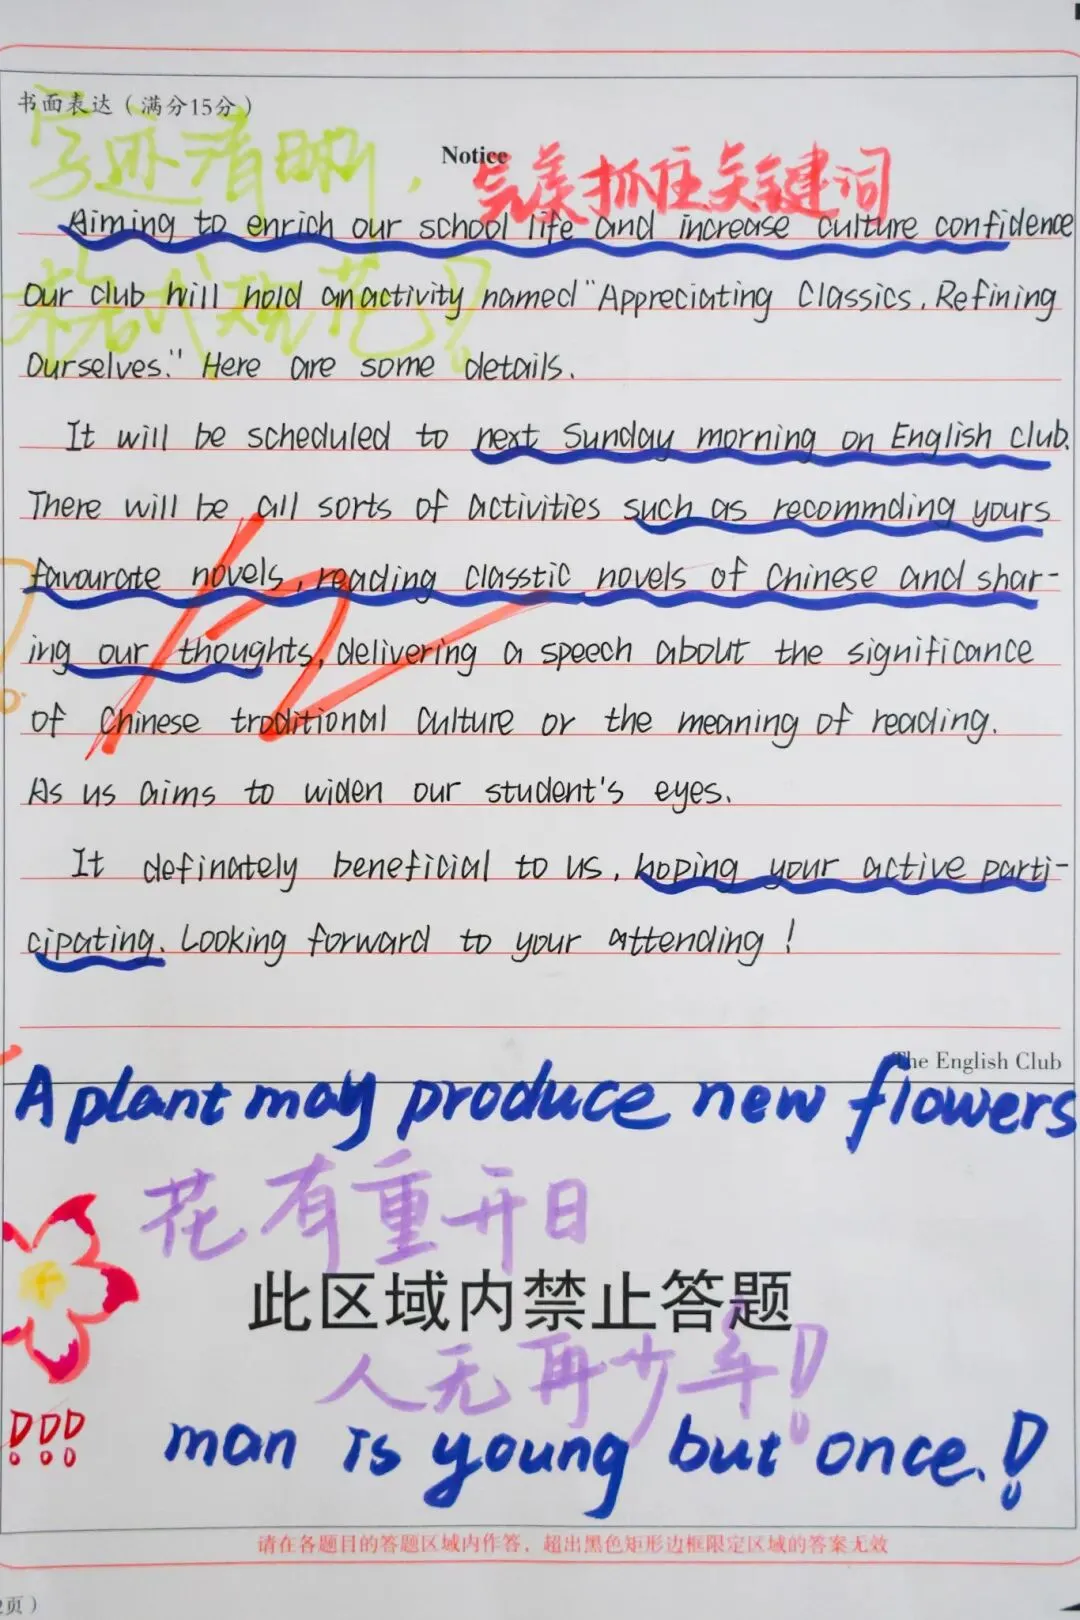 书面表达（满分15分）
字迹清晰，
Notice
完美抓住关键词
Aiming to enrich our school life and increase culture confidence
格式规范！
Our club will hold an activity named "Appreciating Classics, Refining
Ourselves." Here are some details.
It will be scheduled to next Sunday morning on English club.
There will be all sorts of activities such as recommding yours
favourate novels, reading classtic novels of Chinese and shar-
ing our thoughts, delivering a speech about the significance
12
of Chinese traditional culture or the meaning of reading.
As us aims to widen our student's eyes.
It definately beneficial to us, hoping your active parti-
cipating. Looking forward to your attending!
The English Club
A plant may produce new flowers
花有重开日
此区域内禁止答题
人无再少年！
!!! man is young but once.!
请在各题目的答题区域内作答，超出黑色矩形边框限定区域的答案无效
2页）